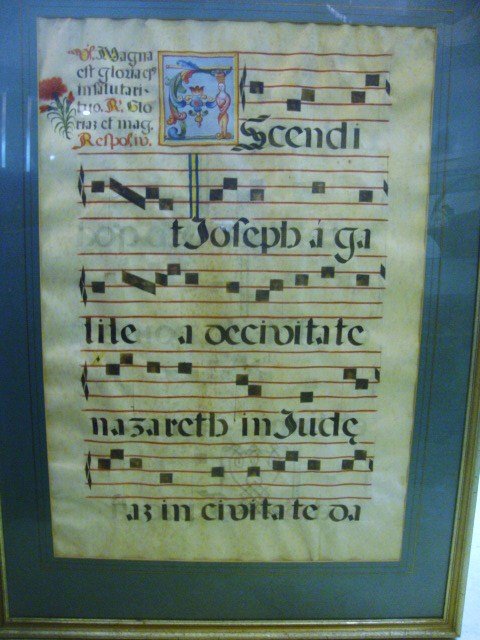 V. Magna
est gloria ei
in salutari
tuo. R. Glo
riaz et mag.
Respōsiv.
AScendi
t Joseph á ga
lile a de civitate
nazareth in Judę
az in civitate da